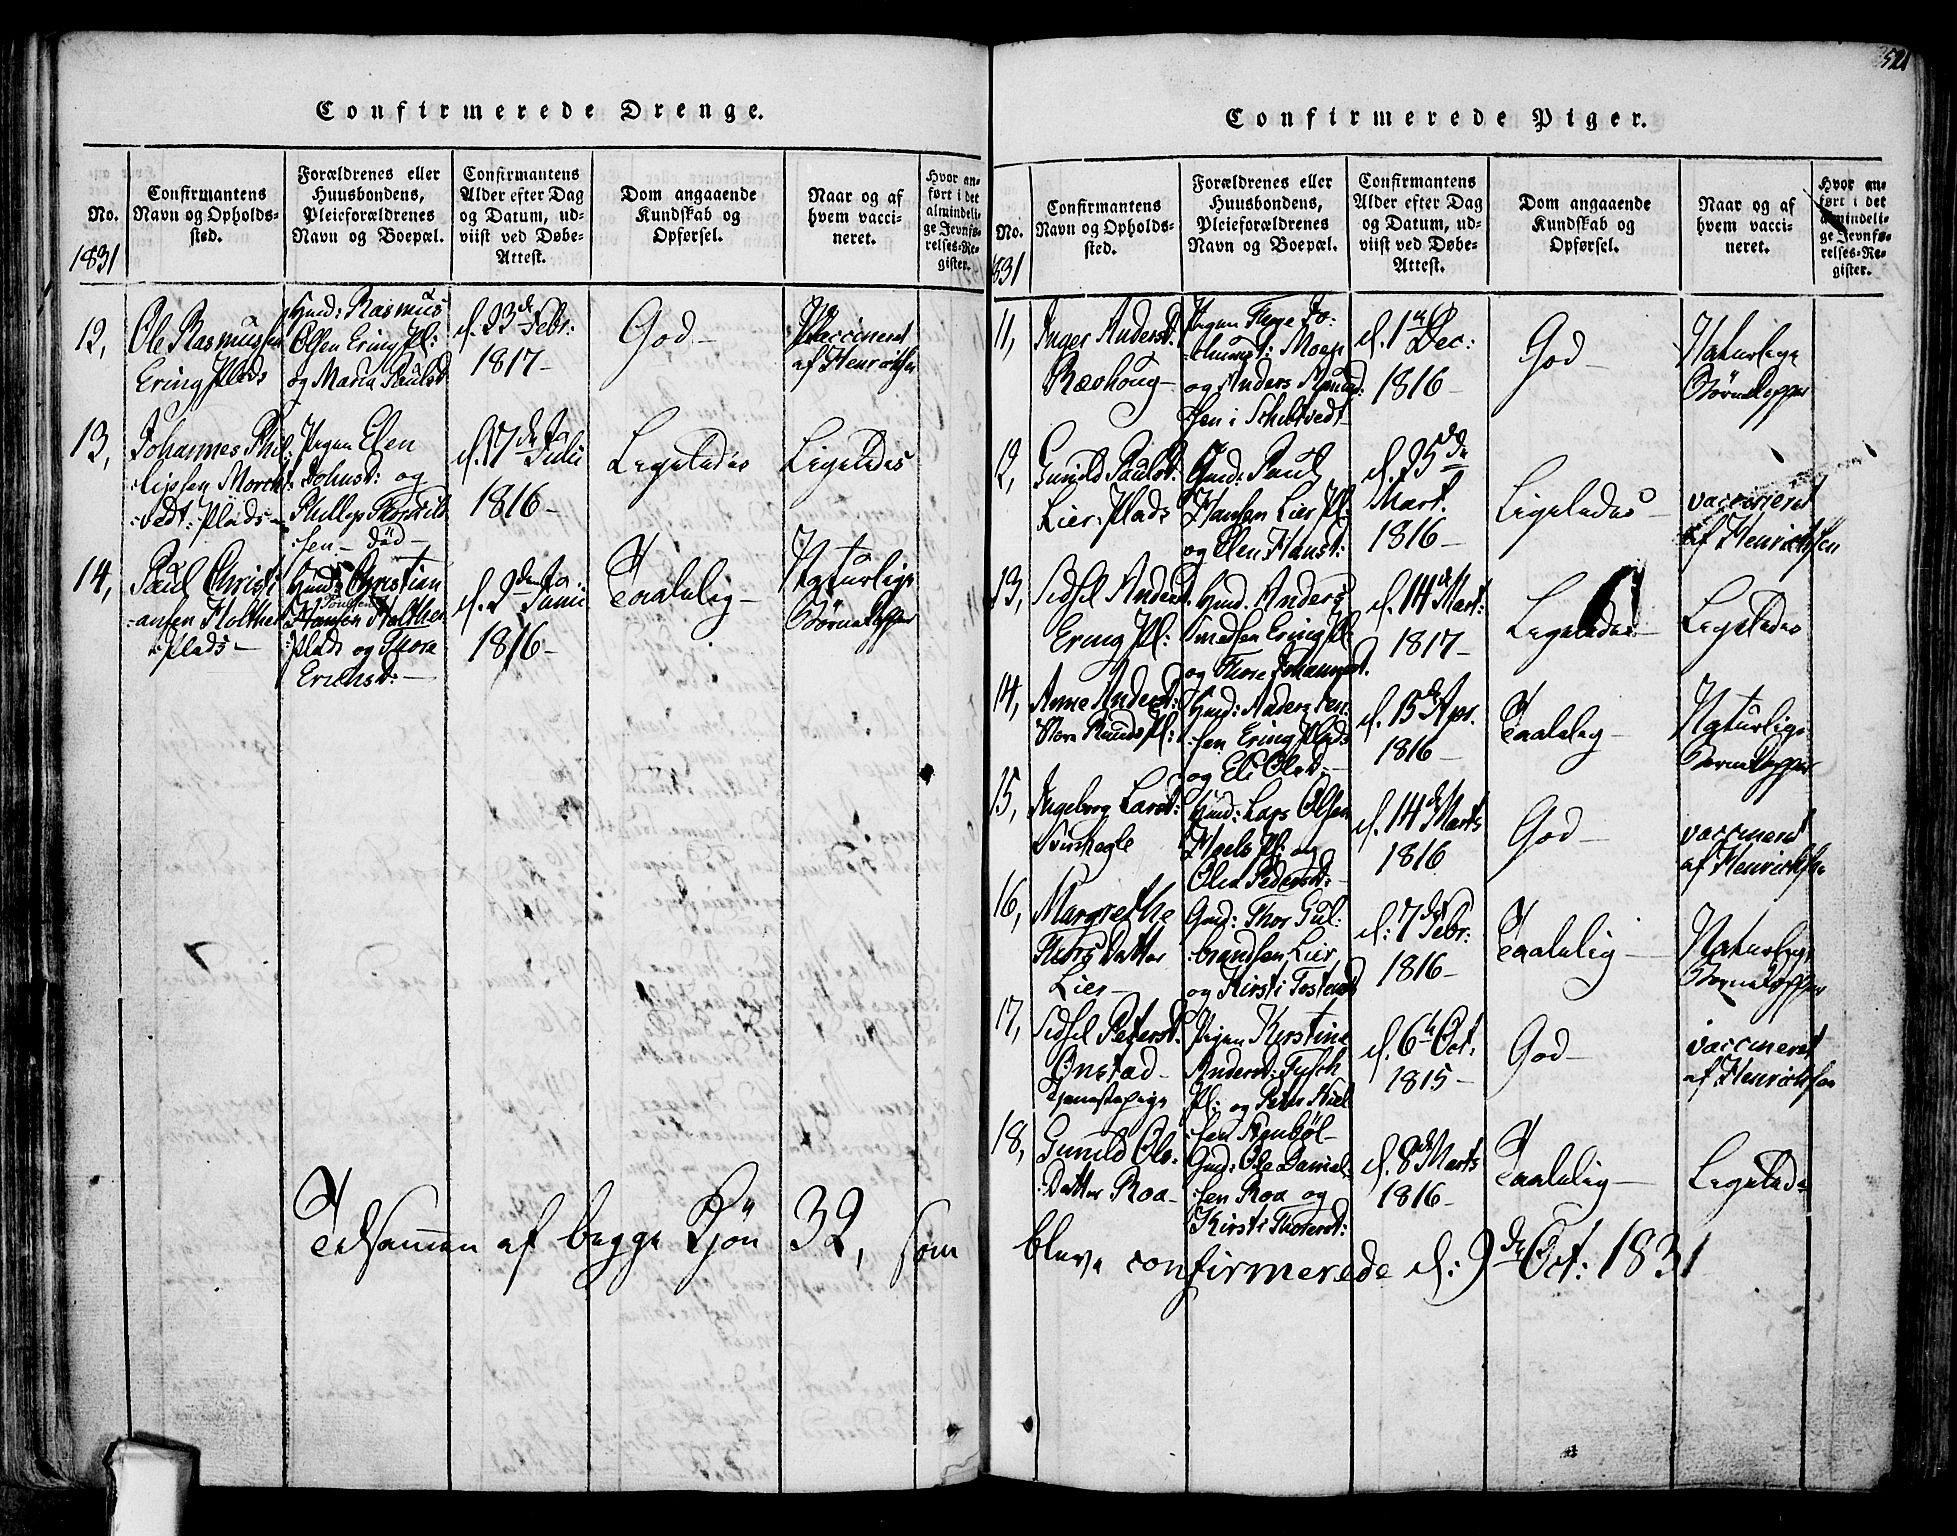 Confirmerede Drenge.
No.
1831
Confirmantens
Navn og Opholds-
sted.
Forældrenes eller
Huusbondens,
Pleieforældrenes
Navn og Boepæl.
Confirmantens
Alder efter Dag
og Datum, ud-
viist ved Døbe-
Attest.
Dom angaaende
Kundskab og
Opførsel.
Naar og af
hvem vacci-
neret.
Hvor an-
ført i det
almindeli-
ge Jevnfø-
relses-Re-
gister.
12,
Ole Rasmussen
Ering Plads
Huusmd: Rasmus
Olsen Ering Pl:
og Maria Paulsd
d. 23de Febr:
1817-
God-
Vaccineret
af Henrichsen
13,
Johannes Phil-
lipsen
vedt: Plads-
Pigen Elen
Johnsd: og
Phillip
sen- død-
d. 17de Julii
1816-
Ligeledes
Ligeledes
14,
Paul Christi-
ansen Holther
Plads-
Huusmd: Christian
Hansen Holther
Plads og Thora
Erichsd:-
d. 2den Junii
1816-
Taalelig-
Naturlige
Børnekopper
Tilsammen af begge Kjön 32, som
Confirmerede Piger.
521
No.
831
Confirmantens
Navn og Opholds-
sted.
Forældrenes eller
Huusbondens,
Pleieforældrenes
Navn og Boepæl.
Confirmantens
Alder efter Dag
og Datum, ud-
viist ved Døbe-
Attest.
Dom angaaende
Kundskab og
Opførsel.
Naar og af
hvem vacci-
neret.
Hvor an-
ført i det
almindeli-
ge Jevnfø-
relses-Re-
gister.
11,
Inger Andersd.
Ravhoug-
Pigen
og Anders
sen i
d. 1ste Dec:
1816-
God
Naturlige
Børnekopper
12,
Gunild Paulsd:
Lier Plads
Gmd: Paul
Hansen Lier Pl:
og Elen Hansd:
d. 25de
Mart.
1816-
Ligeledes-
vaccineret
af Henrichsen
13,
Sidsel Andersd.
Ering Pl:
Hmd. Anders
Ering Pl:
og Thore Johannesd.
d. 14de Mart:
1817-
Ligeledes-
Ligeledes
14,
Anne Andersd:
Pl:
Hmd: Anders
sen Ering Plads
og Eli Olsd:-
d. 15de Apr.
1816-
Taalelig-
Naturlige
Børnekopper
15,
Ingeborg Larsd:
Hmd: Lars Olsen
Pl: og
Olea Pedersd:-
d. 14de Marts
1816
God-
vaccineret
af Henrichsen
16,
Margrethe
Thors Datter
Lier-
Gmd: Thor Gul-
brandsen Lier
og Kirsti
d: 7de Febr:
1816-
Taalelig-
Naturlige
Børnekopper
17,
Sidsel Petersd:
Onstad-
Tjenestepige
Pigen Kirstine
Andersd:
Pl: og Peter Niel-
sen
d. 6te Oct.
1815-
God-
vaccineret
af Henrichsen
18,
Gunild Ols-
Datter Roa-
Gmd: Ole Daniel-
sen Roa og
Kirsti
d. 8de Marts
1816-
Taalelig-
Ligeledes
bleve confirmerede d: 9de Oct: 1831